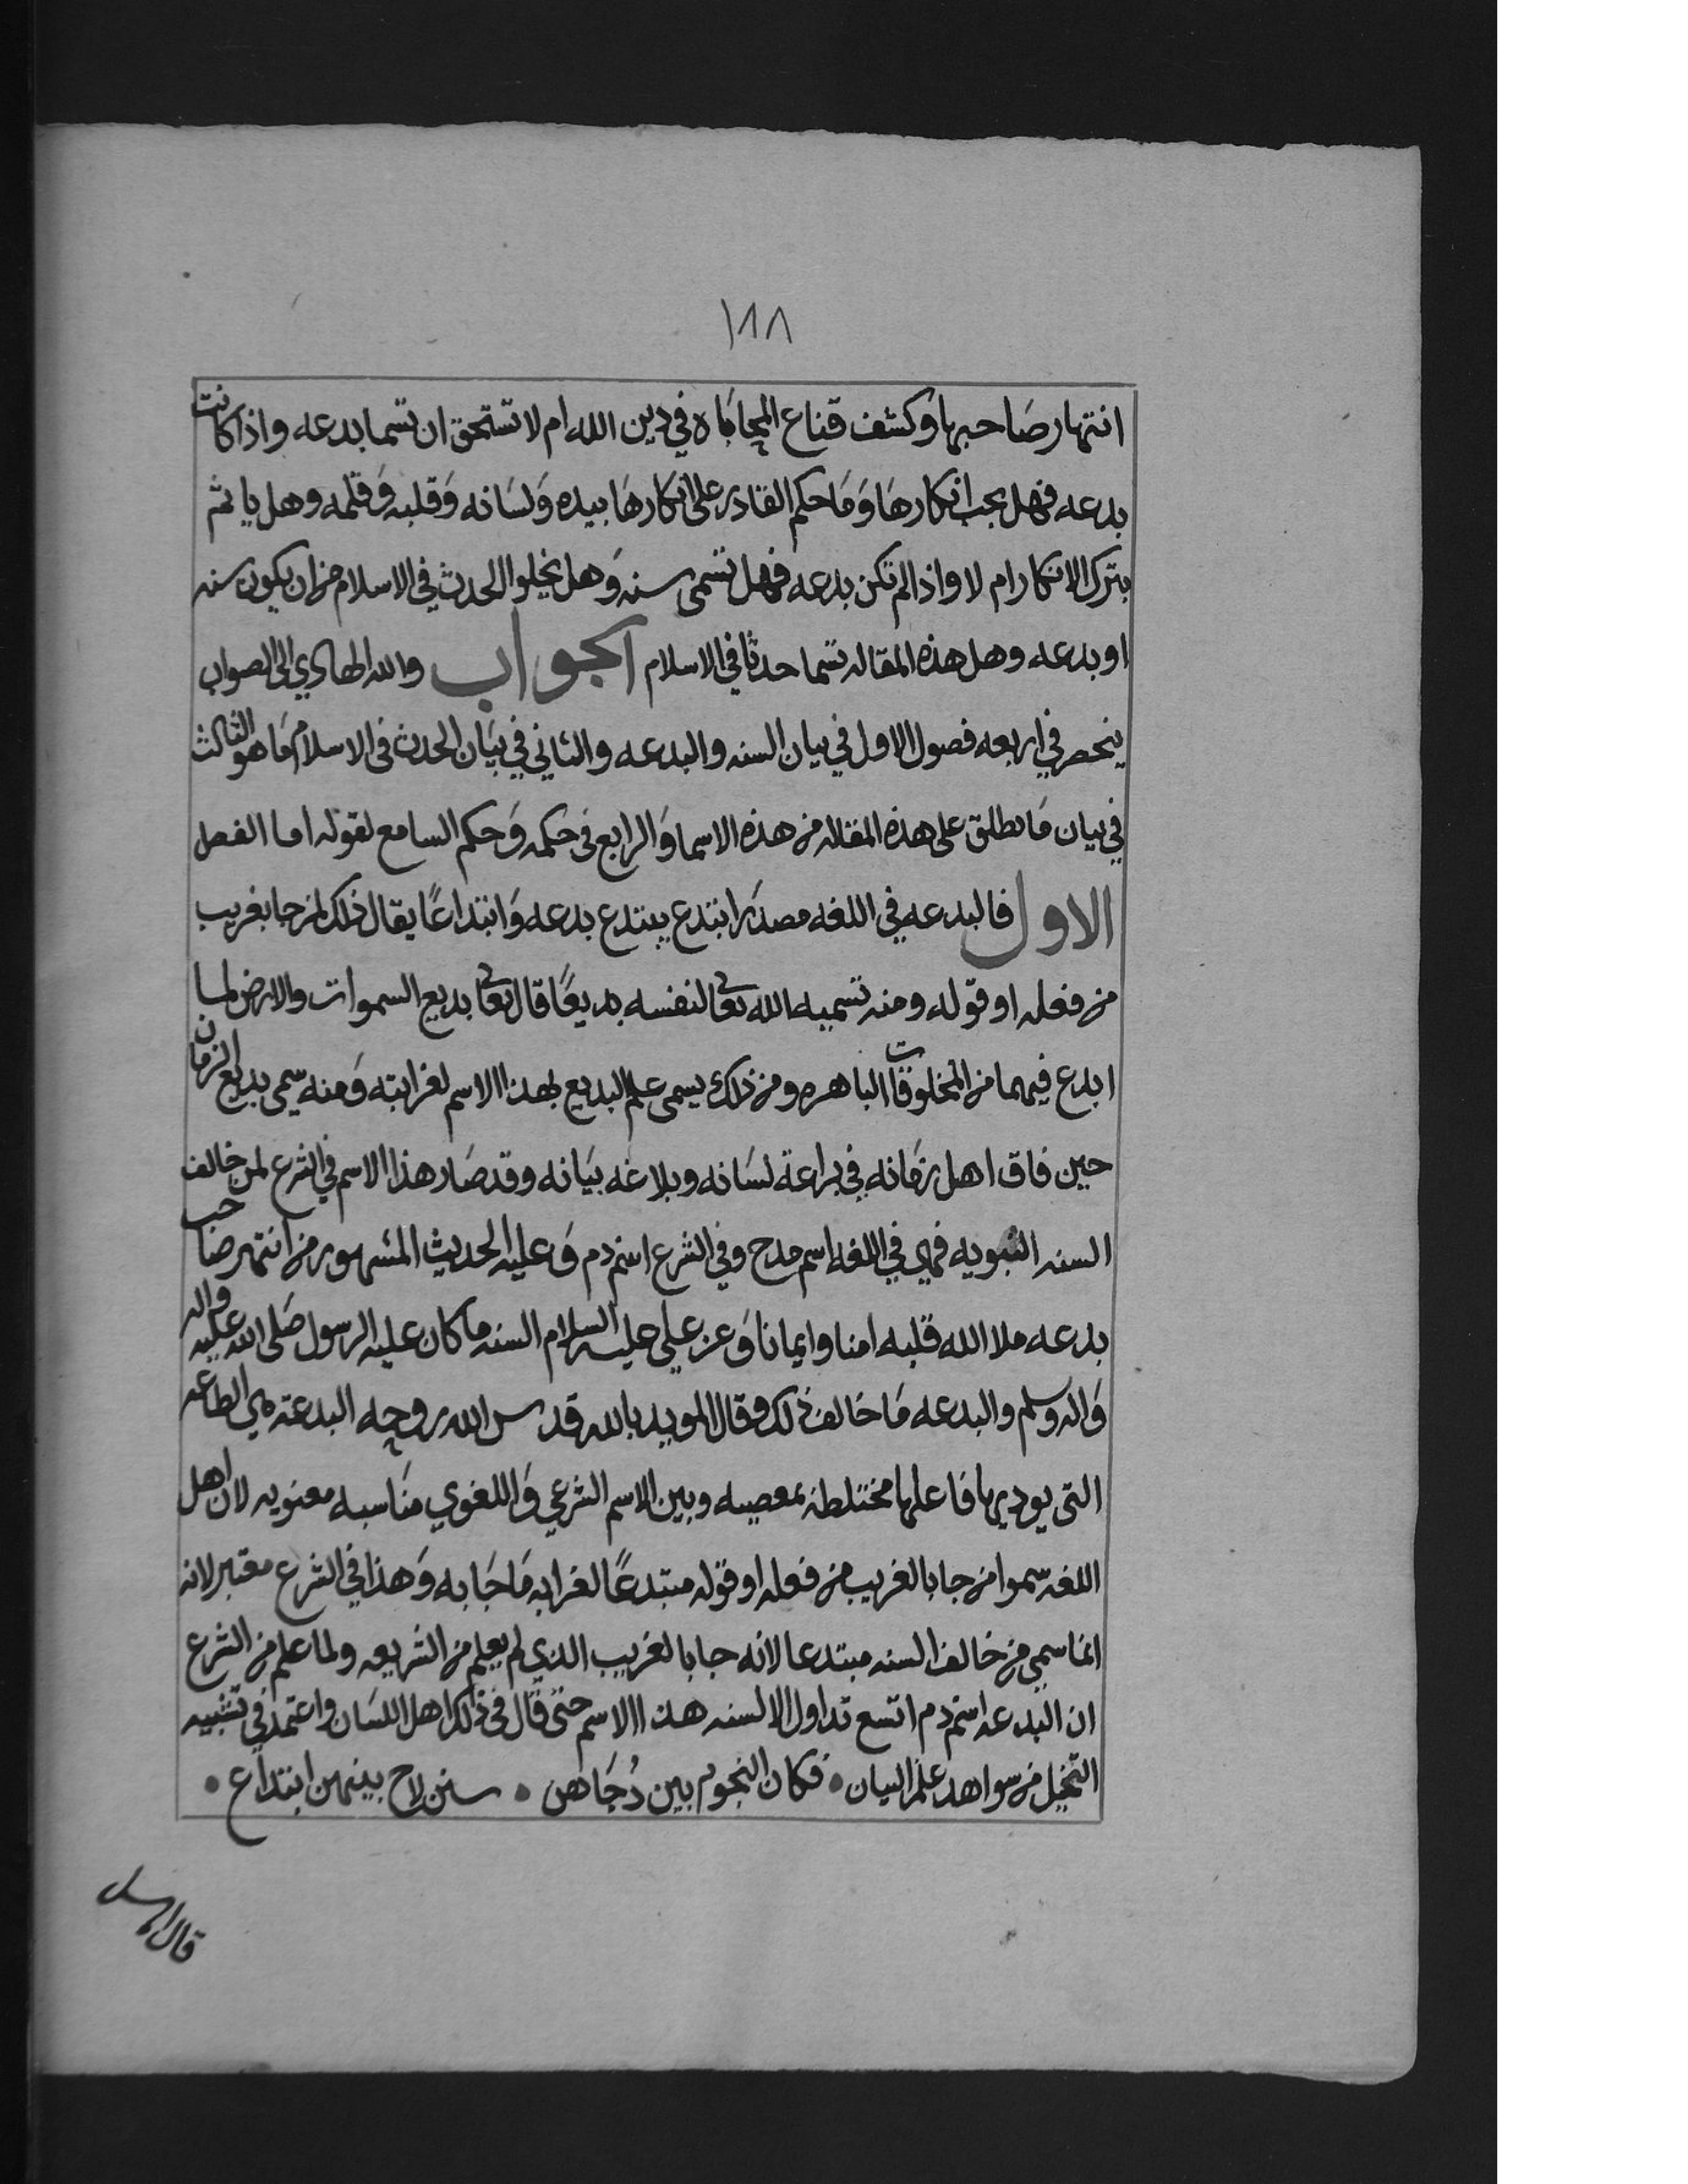 ١٨٨
انتهار صاحبها وكشف قناع المحاباه في دين الله ام لا تستحق ان تسما بدعه واذا كانت
بدعه فهل يجب انكارها وَمَا حكم القادر على انكارهَا بيده وَلسَانه وَقلبه وَقلمه وهل ياثم
بترك الانكار ام لا واذا لم تكن بدعه فهل تسمى سنه وَهل يخلوا الحدث في الاسلام من ان يكون سنه
او بدعه وهل هذه المقاله تسما حدثا في الاسلام الجواب والله الهادي الى الصواب
ينحصر في اربعه فصول الاول في بيان السنه والبدعه والثاني في بيَان الحدث في الاسلام مَا هو الثالث
في بيان مَا يطلق على هذه المقاله من هذه الاسما وَالرابع في حكمه وَحكم السامع لقوله اما الفصل
الاول فالبدعه في اللغه مصدَر ابتدع يبتدع بدعه وَابتداعًا يقال ذلك لمن جا بغريب
من فعله او قوله ومنه تسميه الله تعالى لنفسه بديعًا قال تعالى بديع السموات والارض لما
ابدع فيهما من المخلوقات الباهره ومن ذلك يسمى علم البديع بهذا الاسم لغرابته وَمنه سمي بديع الزمان
حين فاق اهل زمَانه في براعة لسَانه وبلاغه بيَانه وقد صَار هذا الاسم في الشرع لمن خالف
السنه النبويه فهي في اللغه اسم مدح وفي الشرع اسم دم وَعليه الحديث المشهور من انتهر صاحب
بدعه ملا الله قلبه امنا وايمانا وَعن علي عليه السلام السنه ما كان عليه الرسول صَلى الله عليه واله
وَاله وسلم والبدعه مَا خَالف ذلك وقال المويد بالله قدس الله روحه البدعته هي الطاعه
التى يوديها فَاعلها مختلطه بمعصيه وبين الاسم الشرعي وَاللغوي منَاسبه معنويه لان اهل
اللغه سموا من جا بالغريب من فعله او قوله مبتدعًا لغرابه مَا جَا به وَهذا في الشرع معتبر لانه
انما سمي من خالف السنه مبتدعا لانه جا بالغريب الذي لم يعلم من الشريعه ولما علم من الشرع
ان البدعه اسم دم اتسع تداول الالسنه هذا الاسم حتى قال في ذلك اهل اللسَان واعتمد في تشبيه
التخيل من سواهد علم البيان • فكان النجوم بين دُجَاهن • سنن لاح بينهن ابتداع •
قال الرسل